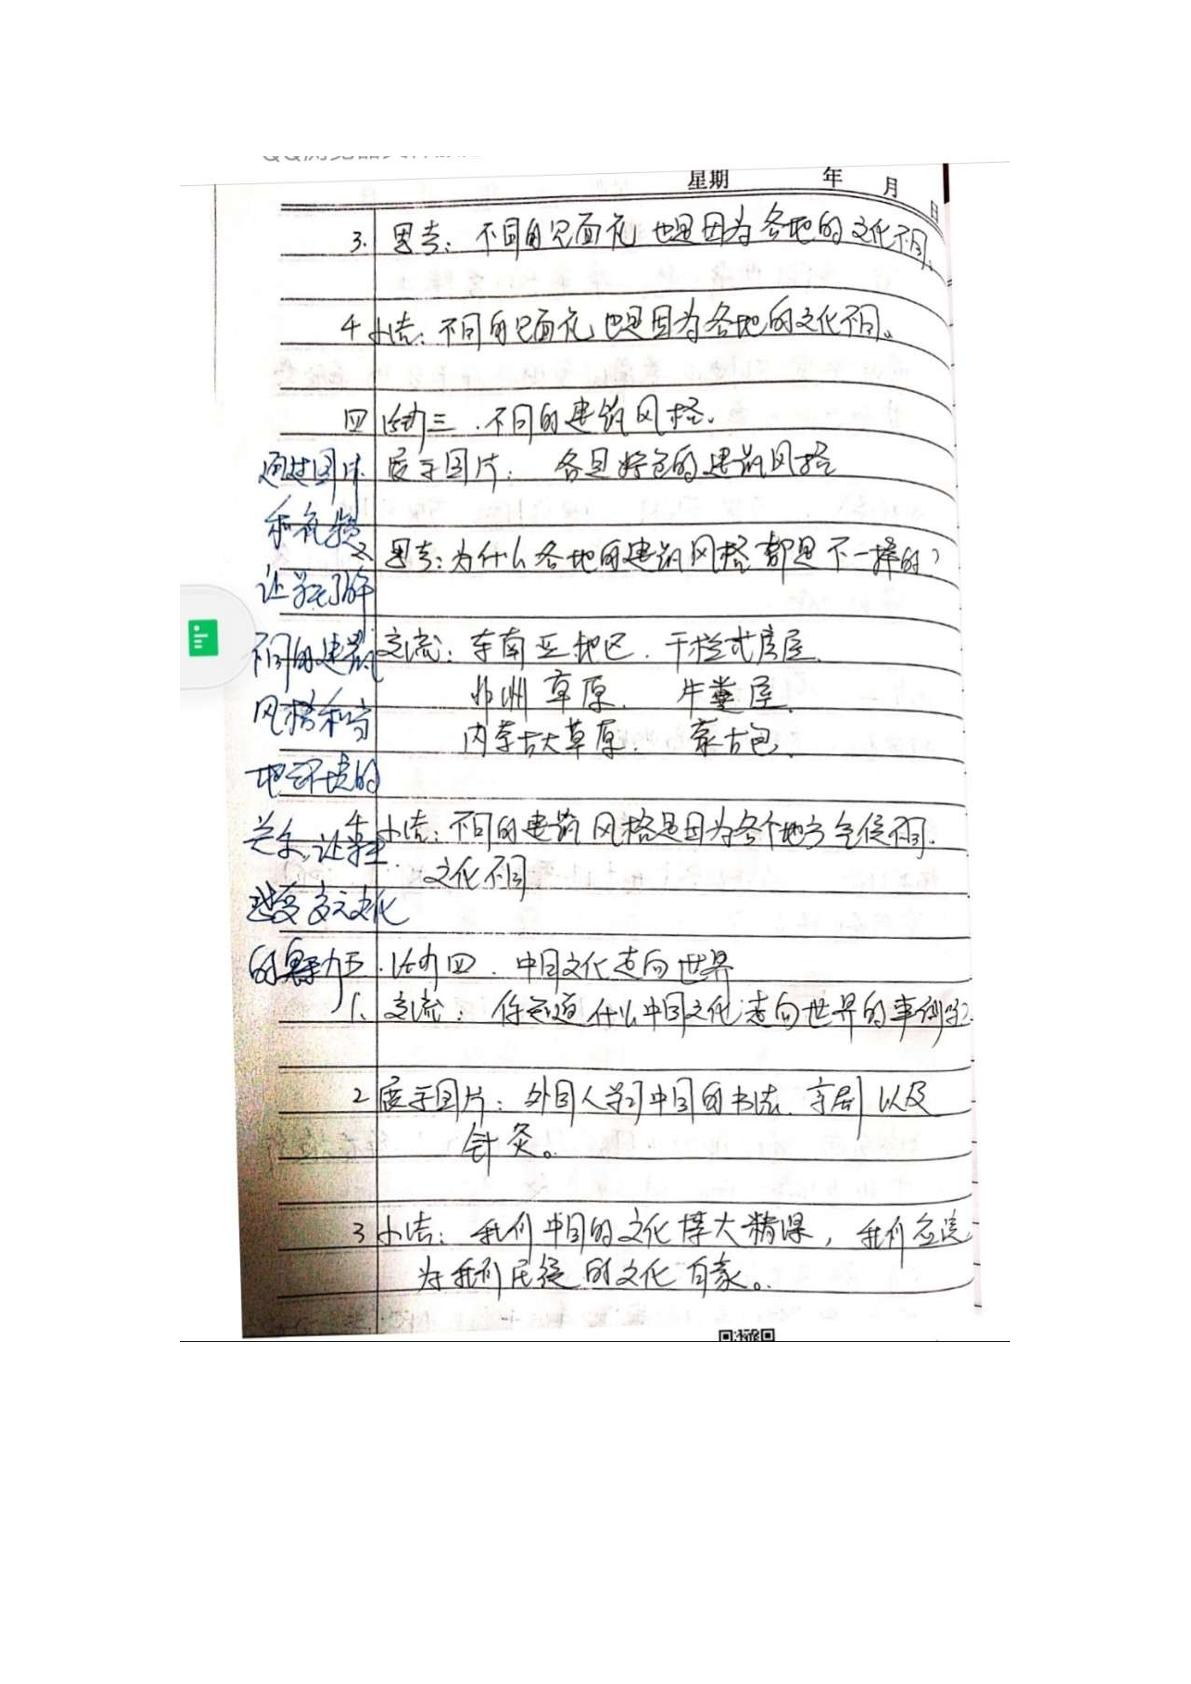 星期 年 月 日
3. 思考：不同的见面礼也是因为各地的文化不同。
4 小结：不同的见面礼也是因为各地的文化不同。
四 活动三.不同的建筑风格.
展示图片：各具特色的建筑风格
2 思考：为什么各地的建筑风格都是不一样的？
交流：东南亚地区.干栏式房屋.
非洲草原. 牛粪屋.
内蒙古大草原. 蒙古包.
4 小结：不同的建筑风格是因为各个地方气候不同.
文化不同
通过图片
和视频
让学生了解
不同的建筑
风格和与
地理环境的
关系,让学生
感受多元文化
的魅力
五.活动四.中国文化走向世界
1. 交流：你知道什么中国文化走向世界的事例吗?
2 展示图片：外国人学习中国的书法.京剧以及
针灸。
3 小结：我们中国的文化博大精深，我们应该
为我们民族的文化自豪。